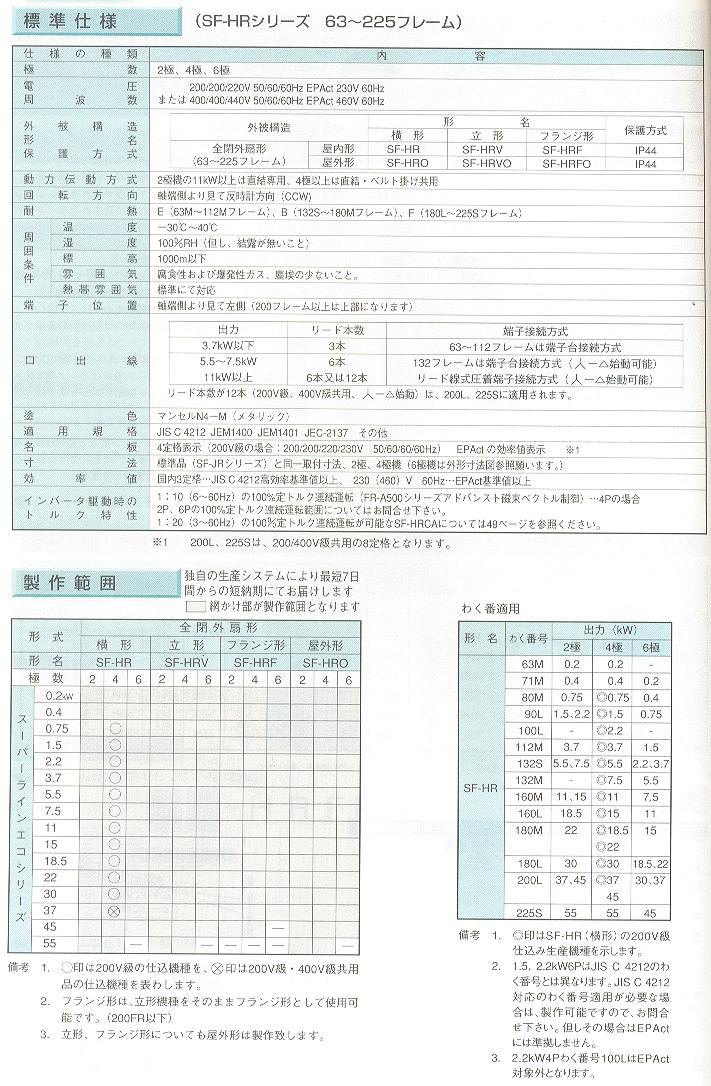 標準仕様 (SF-HRシリーズ 63〜225フレーム)
仕様の種類 内容
極数 2極、4極、6極
電圧 200/200/220V 50/60/60Hz EPAct 230V 60Hz
周波数 または 400/400/440V 50/60/60Hz EPAct 460V 60Hz
外被構造
形名
保護方式
外被構造 形名 保護方式
横形 立形 フランジ形
全閉外扇形 屋内形 SF-HR SF-HRV SF-HRF IP44
(63〜225フレーム) 屋外形 SF-HRO SF-HRVO SF-HRFO IP44
動力伝動方式 2極機の11kW以上は直結専用、4極以上は直結・ベルト掛け共用
回転方向 軸端側より見て反時計方向(CCW)
耐熱 E(63M〜112Mフレーム)、B(132S〜180Mフレーム)、F(180L〜225Sフレーム)
周囲条件
温度 −30℃〜40℃
湿度 100%RH(但し、結露が無いこと)
標高 1000m以下
雰囲気 腐食性および爆発性ガス、塵埃の少ないこと。
熱帯雰囲気 標準にて対応
端子位置 軸端側より見て左側(200フレーム以上は上部になります)
口出線
出力 リード本数 端子接続方式
3.7kW以下 3本 63〜112フレームは端子台接続方式
5.5〜7.5kW 6本 132フレームは端子台接続方式(人−△始動可能)
11kW以上 6本又は12本 リード線式圧着端子接続方式(人−△始動可能)
リード本数が12本(200V級、400V級共用、人−△始動)は、200L、225Sに適用されます。
塗色 マンセルN4−M(メタリック)
適用規格 JIS C 4212 JEM1400 JEM1401 JEC-2137 その他
名板 4定格表示(200V級の場合:200/200/220/230V 50/60/60/60Hz) EPActの効率値表示 ※1
寸法 標準品(SF-JRシリーズ)と同一取付寸法、2極、4極機(6極機は外形寸法図参照願います。)
効率値 国内3定格…JIS C 4212高効率基準値以上、 230(460)V 60Hz…EPAct基準値以上
インバータ駆動時のトルク特性
1:10(6〜60Hz)の100%定トルク連続運転(FR-A500シリーズアドバンスト磁束ベクトル制御)…4Pの場合
2P、6Pの100%定トルク連続運転範囲についてはお問合せ下さい。
1:20(3〜60Hz)の100%定トルク連続運転が可能なSF-HRCAについては49ページを参照ください。
※1 200L、225Sは、200/400V級共用の8定格となります。
製作範囲
独自の生産システムにより最短7日
間からの短納期にてお届けします
網かけ部が製作範囲となります
形式 全閉外扇形
横形 立形 フランジ形 屋外形
形名 SF-HR SF-HRV SF-HRF SF-HRO
極数 2 4 6 2 4 6 2 4 6 2 4 6
スーパーラインエコシリーズ
0.2kW
0.4
0.75 ○
1.5 ○
2.2 ○
3.7 ○
5.5 ○
7.5 ○
11 ○
15 ○
18.5 ○
22 ○
30 ○
37 ⊗
45 —
55 — — — — — —
備考 1. ○印は200V級の仕込機種を、⊗印は200V級・400V級共用
品の仕込機種を表わします。
2. フランジ形は、立形機種をそのままフランジ形として使用可
能です。(200FR以下)
3. 立形、フランジ形についても屋外形は製作致します。
わく番適用
形名 わく番号 出力(kW)
2極 4極 6極
SF-HR
63M 0.2 0.2 -
71M 0.4 0.4 0.2
80M 0.75 ◎0.75 0.4
90L 1.5、2.2 ◎1.5 0.75
100L - ◎2.2 -
112M 3.7 ◎3.7 1.5
132S 5.5、7.5 ◎5.5 2.2、3.7
132M - ◎7.5 5.5
160M 11、15 ◎11 7.5
160L 18.5 ◎15 11
180M 22 ◎18.5 15
◎22
180L 30 ◎30 18.5、22
200L 37、45 ◎37 30、37
45
225S 55 55 45
備考 1. ◎印はSF-HR(横形)の200V級
仕込み生産機種を示します。
2. 1.5、2.2kW6PはJIS C 4212のわ
く番号とは異なります。JIS C 4212
対応のわく番号適用が必要な場
合は、製作可能ですので、お問合
せ下さい。但しその場合はEPAct
には準拠しません。
3. 2.2kW4Pわく番号100LはEPAct
対象外となります。